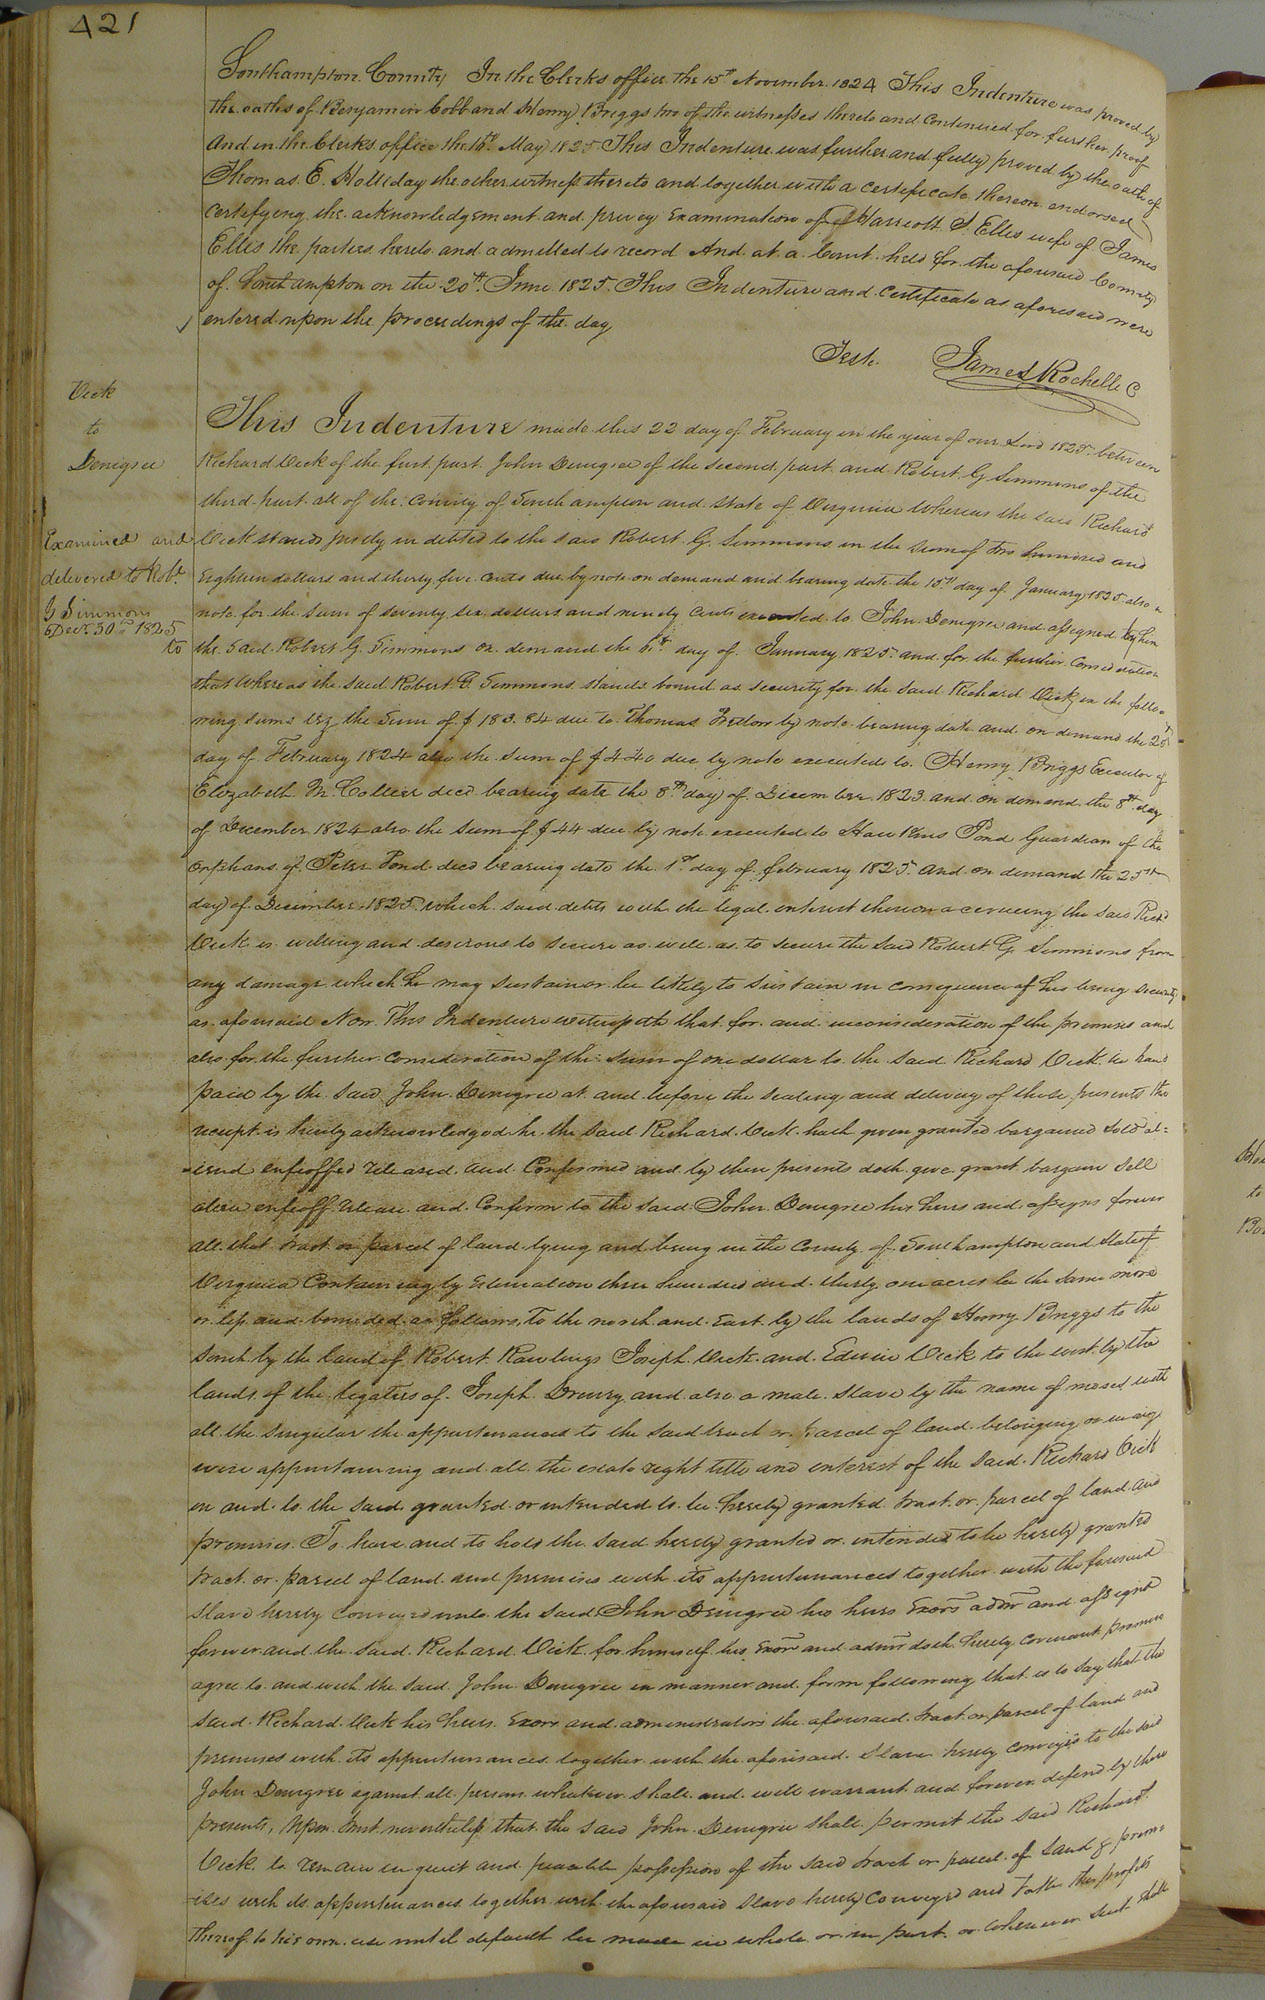 421
Southampton County In the Clerks office the 15th November 1824 This Indenture was proved by
the oaths of Benjamin Cobb and Henry Briggs two of the witnesses thereto and Continued for further proof
And in the Clerks office the 16th May 1825 This Indenture was further and fully proved by the oath of
Thomas E. Holliday the other witness thereto and together with a certificate thereon endorsed
certifying the acknowledgement and privey Examination of Harriott S. Ellis wife of James
Ellis the parties hereto and admitted to record And at a Court held for the aforesaid County
of Southampton on the 20th June 1825. This Indenture and Certificate as aforesaid were
entered upon the proceedings of the day
Teste. James Rochelle C
Vick
to
Denigree
Examined and
delivered to Robt.
G Simmons
Decr. 30th 1825
This Indenture made this 22 day of February in the year of our Lord 1825 between
Richard Vick of the first part John Denigree of the second part and Robert G Simmons of the
third part all of the County of Southampton and state of Virginia Whereas the said Richard
Vick stands justly indebted to the said Robert G. Simmons in the sum of two hundred and
Eighteen dollars and thirty five cents due by note on demand and bearing date the day of January 1825 also a
note for the sum of seventy six dollars and ninety cents executed to John Denigree and assigned by him
to the said Robert G. Simmons on demand the day of January 1825 and for the further Consideration
that Whereas the said Robert G. Simmons stands bound as security for the said Richard Vick in the follo-
wing sums viz the Sum of $ 183.84 due to Thomas by note bearing date and on demand the 25th
day of February 1824 also the sum of $440 due by note executed to Henry Briggs Executor of
Elizabeth M Collier decd bearing date the 8th day of December 1823 and on demand the 8th day
of December 1824 also the sum of $44 due by note executed to Hawkins Pond Guardian of the
orphans of Peter Pond decd bearing date the 1st day of february 1825 and on demand the 25th
day of December 1825 which said debts with the legal interest thereon accrueing the said Richd
Vick is willing and desirous to secure as well as to secure the said Robert G. Simmons from
any damage which he may sustain or be likely to sustain in consequence of his being security
as aforesaid Now This Indenture witnesseth that for and inconsideration of the premises and
also for the further consideration of the sum of one dollar to the said Richard Vick in hand
paid by the said John Denigree at and before the sealing and delivery of these presents the
receipt is hereby acknowledged he the said Richard Vick hath given granted bargained sold al=
iened enfeoffed released and Confirmed and by these presents doth give grant bargain sell
alien enfeoff release and Confirm to the said John Denigree his heirs and assigns forever
all that tract or parcel of land lying and being in the County of Southampton and State of
Virginia Containing by Estimation three hundred and thirty one acres be the same more
or less and bounded as follows, To the north and East by the lands of Henry Briggs to the
South by the land of Robert Rawlings Joseph Vick and Edwin Vick to the west by the
lands of the legatees of Joseph Drewry and also a male slave by the name of mosed with
all the singular the appurtenances to the said tract or parcel of land belonging or in any
wise appurtaining and all the estate right title and interest of the said Richard Vick
in and to the said granted or intended to be hereby granted tract or parcel of land and
premises. To have and to hold the said hereby granted or intended to be hereby granted
tract or parcel of land and premises with its appurtenances together with the foresaid
slave hereby conveyed unto the said John Denigree his heirs Exors admr and assigns
forever and the said Richard Vick for himself his Exor and admr doth hereby covenant promise
agree to and with the said John Denigree in manner and form following that is to say that the
said Richard Vick his heirs Exors and administrators the aforesaid tract or parcel of land and
premises with its appurtenances together with the aforesaid slave hereby conveyed to the said
John Denigree against all persons whatever shall and will warrant and forever defend by these
presents, Upon trust nevertheless that the said John Denigree shall permit the said Richard
Vick to remain in quiet and peaceable possession of the said tract or parcel of land & prem-
ises with its appurtenances together with the aforesaid slave hereby Conveyed and take the profits
thereof to his own use until default be made in whole or in part or whenever such shall
to